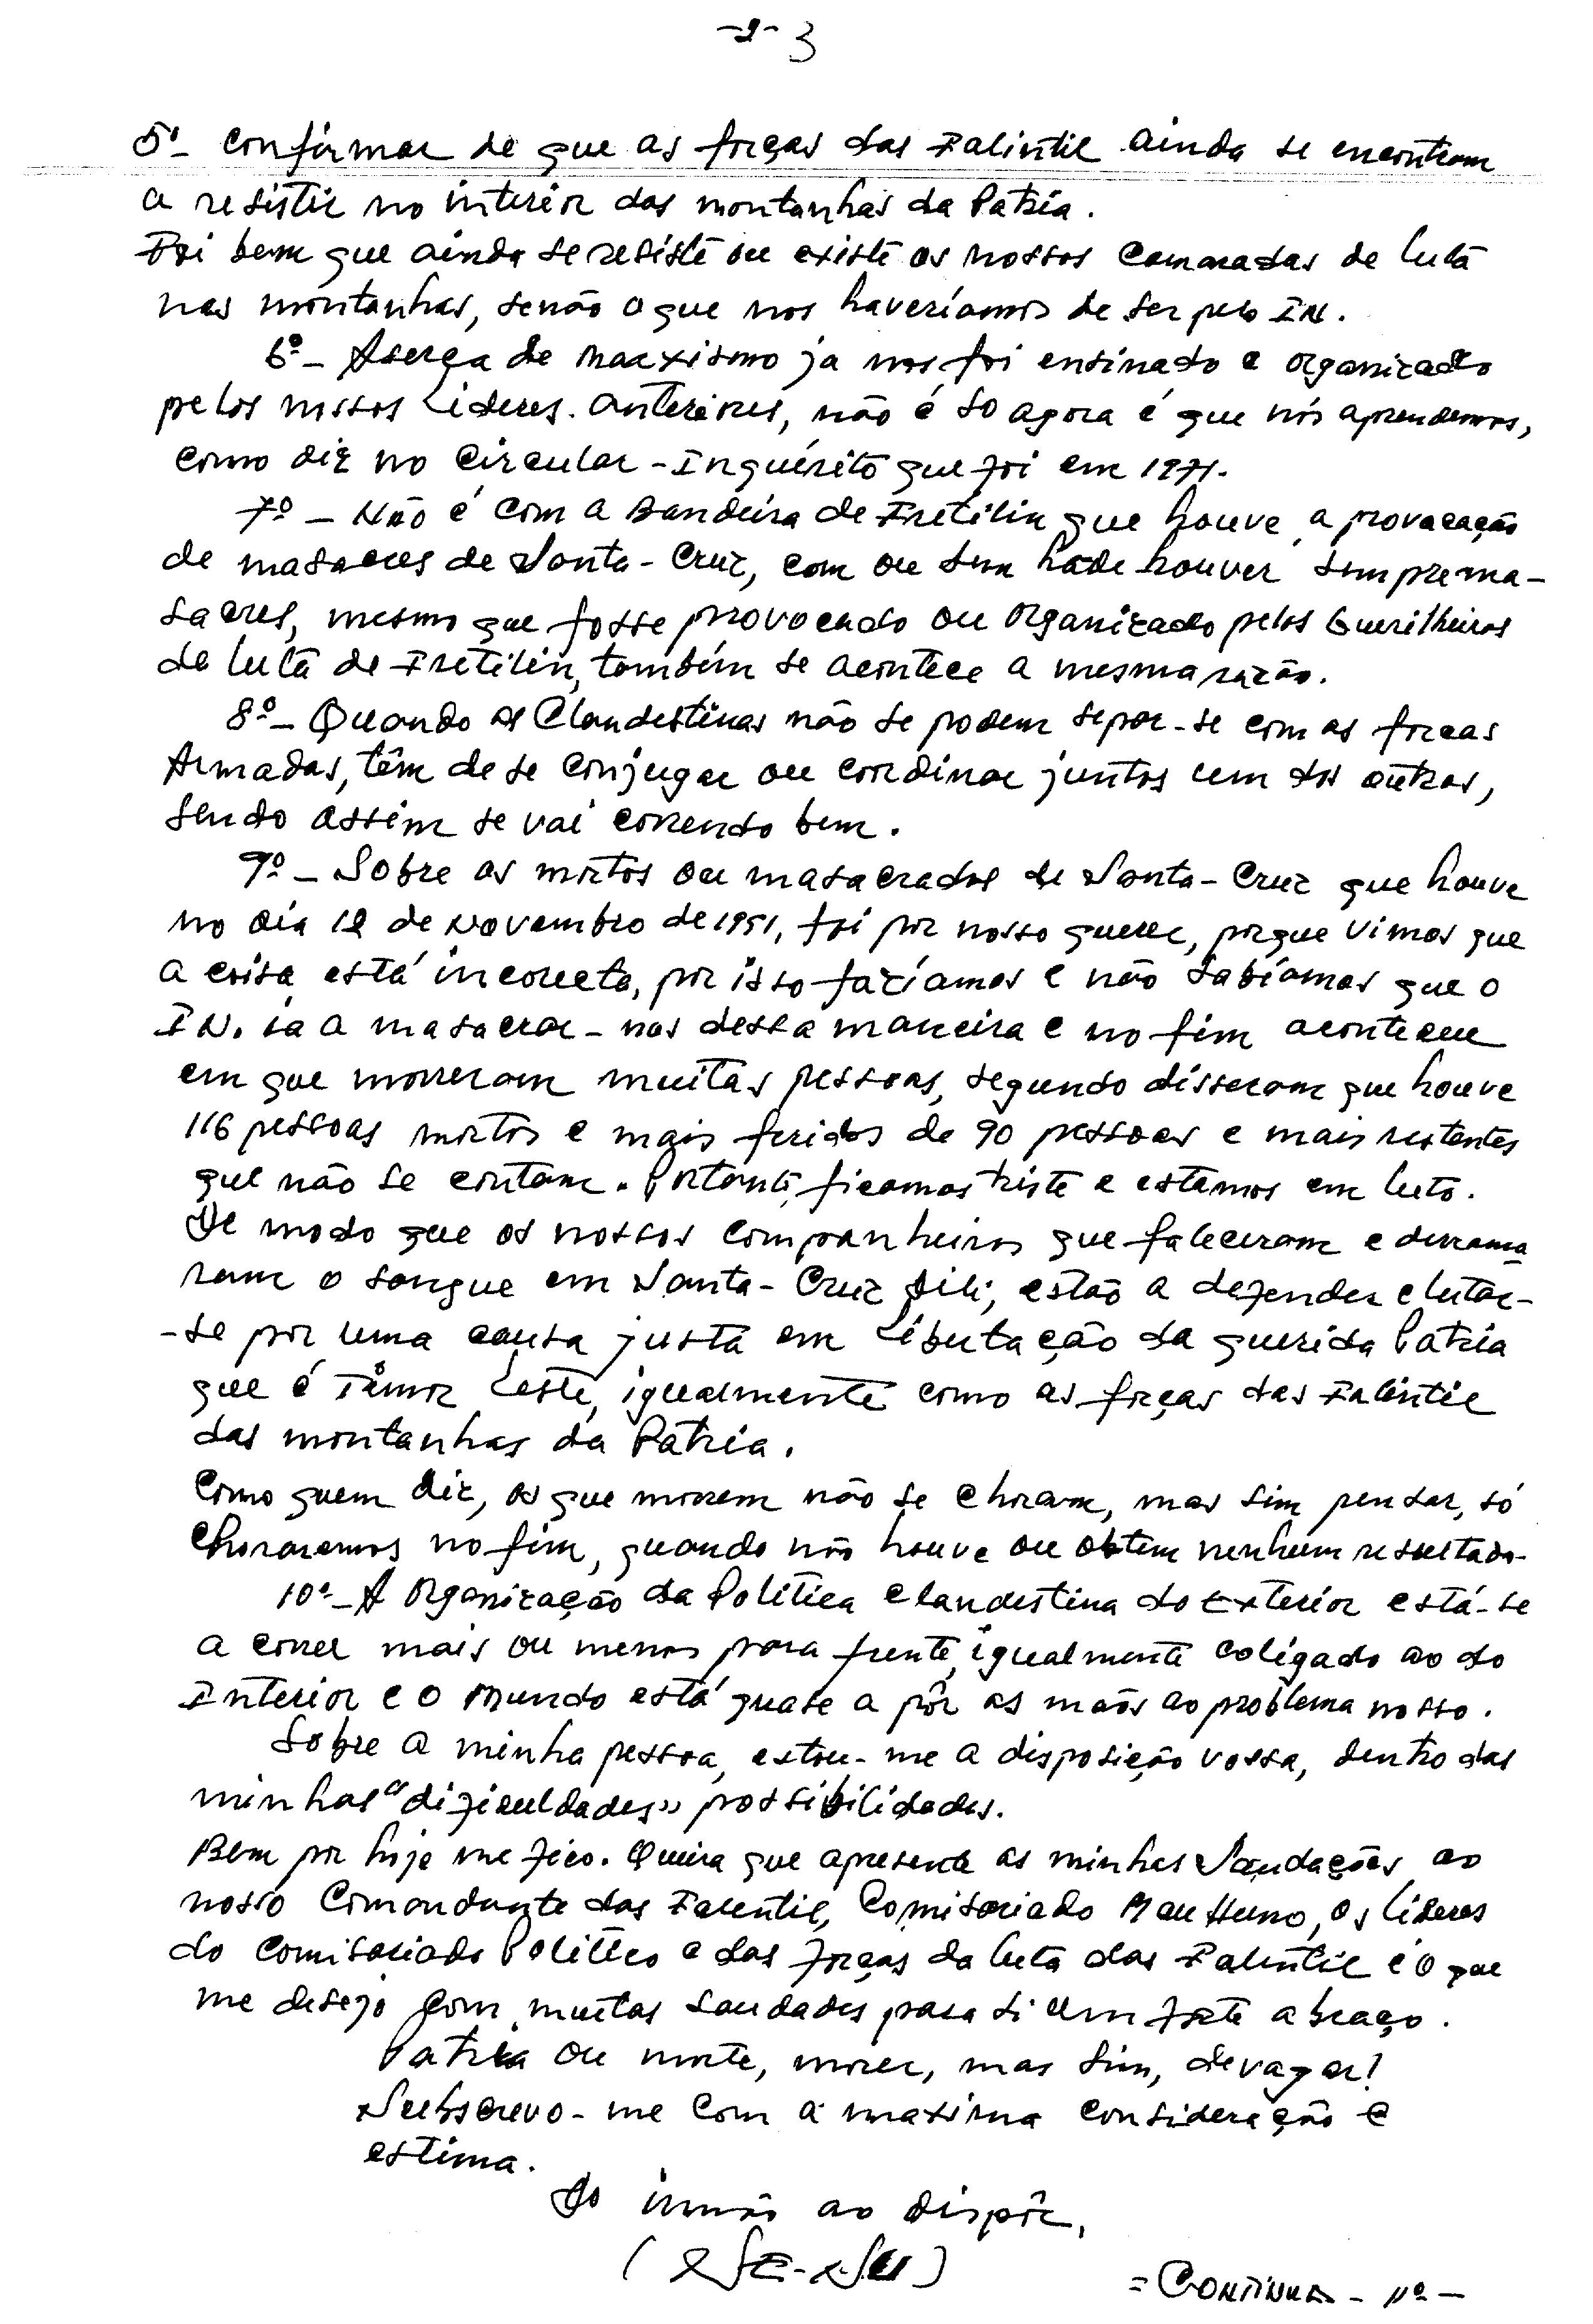 -2- 3
5º- Confirmar de que as forças das Falintil ainda se encontram
a resistir no interior das montanhas da Patria.
Foi bem que ainda se resiste ou existe os nossos camaradas de luta
nas montanhas, senão o que nos haveríamos de ser pelo IN.
6º- Aserça de marxismo ja nos foi ensinado e organizado
pelos nossos Lideres. anteriores, não é so agora é que nós aprendemos,
como diz no Circular-Inquérito que foi em 1971.
7º - Não é com a Bandeira de Fretilin que houve a provocação
de masacres de Santa-Cruz, com ou sem hade houver sempre ma-
sacres, mesmo que fosse provocado ou organizado pelos Guerilheiros
de luta de Fretilin, também se acontece a mesma razão.
8º- Quando as Clandestinas não se podem separ-se com as forcas
Armadas, têm de se conjugar ou cordinar juntos um dos outros,
sendo assim se vai correndo bem.
9º - Sobre os mortos ou masacrados de Santa-Cruz que houve
no dia 12 de Novembro de 1991, foi por nosso querer, porque vimos que
a coisa está incorrecta, por isso fazíamos e não sabíamos que o
IN. ia a masacrar-nos dessa maneira e no fim aconteceu
em que morreram muitas pessoas, segundo disseram que houve
116 pessoas mortos e mais feridos de 90 pessoas e mais restantes
que não se contam. Portanto, ficamos triste e estamos em luto.
De modo que os nossos companheiros que faleceram e derrama
ram o sangue em Santa-Cruz Dili, estão a defender e lutar-
-se por uma causa justa em Libertação da querida Patria
que é Timor Leste, igualmente como as forças das Falintil
das montanhas da Patria.
Como quem diz, os que morrem não se choram, mas sim pensar, só
choraremos no fim, quando não houve ou obtem nenhum resultado.
10º- A Organização da Politica Clandestina do Exterior está-se
a correr mais ou menos para frente, igualmente coligado ao do
Interior e o Mundo está quase a pôr as mãos ao problema nosso.
Sobre a minha pessoa, estou-me a disposição vossa, dentro das
minhas "dificuldades" possibilidades.
Bem por hoje me fico. Queira que apresente as minhas Saudações ao
nosso Comandante das Falentil, Comisariado Mau Huno, os lideres
do Comisariado Politico e das forças da luta das Falintil é o que
me desejo com muitas saudades para si um forte abraço.
Patria ou morte, morrer, mas sim, devagar!
Subscrevo-me com a maxima consideração e
estima.
Do irmão ao dispôr,
= CONTINUA - Nº -